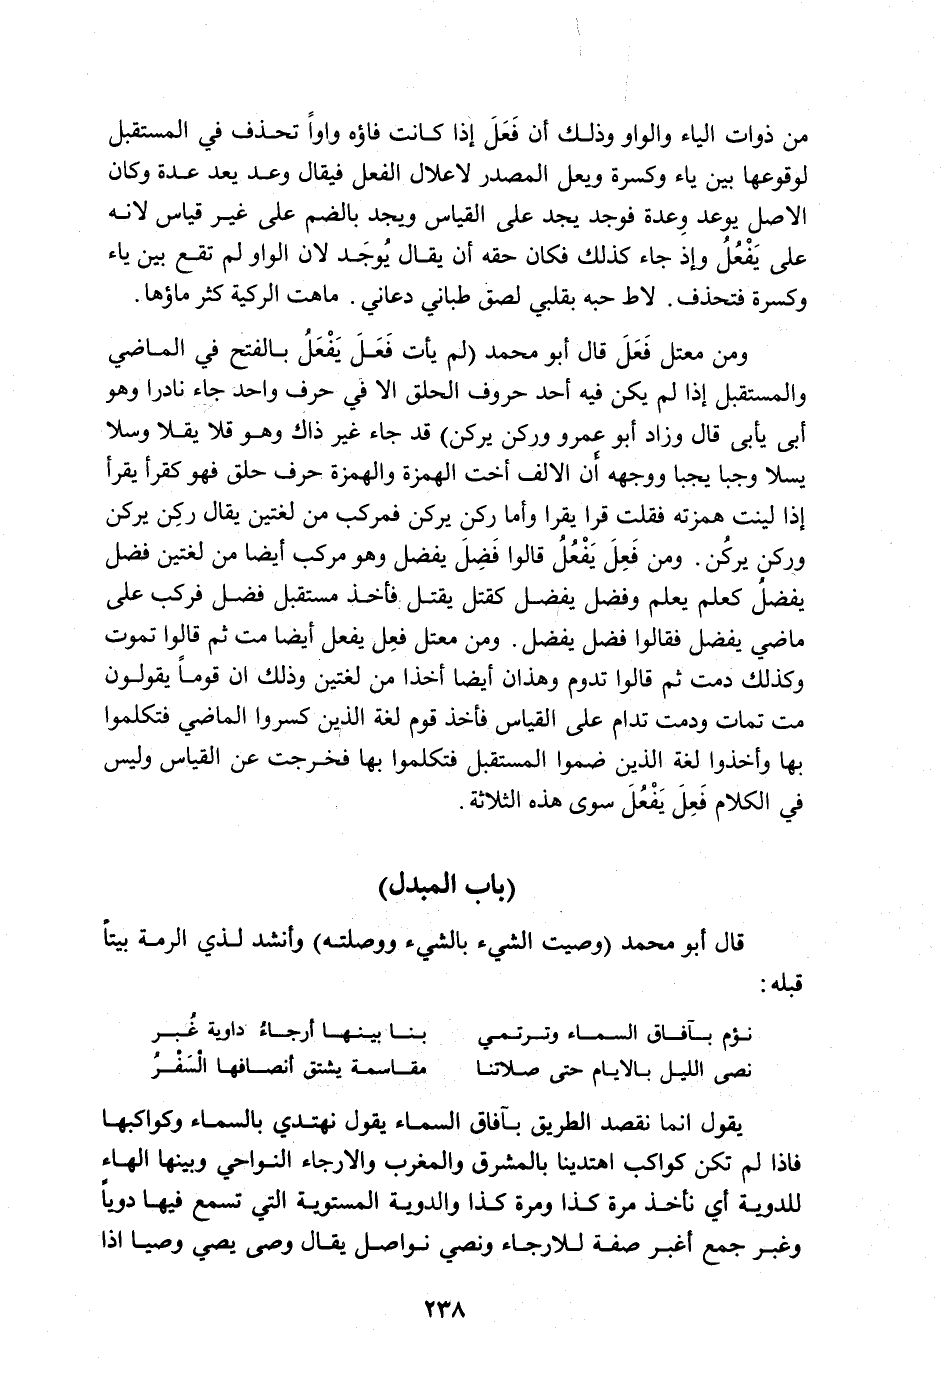 من ذوات الياء والواو وذلك أن فَعَلَ إذا كانت فاؤه واواً تحذف في المستقبل
لوقوعها بين ياء وكسرة ويعل المصدر لاعلال الفعل فيقال وعد يعد عدة وكان
الاصل يوعد وِعدة فوجد يجد على القياس ويجد بالضم على غير قياس لانه
على يَفْعُلُ وإذ جاء كذلك فكان حقه أن يقال يُوجَد لان الواو لم تقع بين ياء
وكسرة فتحذف. لاط حبه بقلبي لصق طباني دعاني. ماهت الركية كثر ماؤها.
ومن معتل فَعَلَ قال أبو محمد (لم يأت فَعَل يَفْعَلُ بالفتح في الماضي
والمستقبل إذا لم يكن فيه أحد حروف الحلق الا في حرف واحد جاء نادرا وهو
أبى يأبى قال وزاد أبو عمرو وركن يركن) قد جاء غير ذاك وهو قلا يقلا وسلا
يسلا وجبا يجبا ووجهه أن الالف أخت الهمزة والهمزة حرف حلق فهو كقرأ يقرأ
إذا لينت همزته فقلت قرا يقرا وأما ركن يركن فمركب من لغتين يقال ركِن يركن
وركن يركُن. ومن فَعِلَ يَفْعُلُ قالوا فَضِلَ يفضل وهو مركب أيضا من لغتين فضل
يفضلُ كعلم يعلم وفضل يفضل كقتل يقتل فأخذ مستقبل فضل فركب على
ماضي يفضل فقالوا فضل يفضل. ومن معتل فعِل يفعل أيضا مت ثم قالوا تموت
وكذلك دمت ثم قالوا تدوم وهذان أيضا أخذا من لغتين وذلك ان قوماً يقولون
مت تمات ودمت تدام على القياس فأخذ قوم لغة الذين كسروا الماضي فتكلموا
بها وأخذوا لغة الذين ضموا المستقبل فتكلموا بها فخرجت عن القياس وليس
في الكلام فَعِلَ يَفْعُلَ سوى هذه الثلاثة.
(باب المبدل)
قال أبو محمد (وصيت الشيء بالشيء ووصلته) وأنشد لذي الرمة بيتاً
قبله:
نؤم بآفاق السماء وترتمي بنا بينها أرجاءُ داوية غُبر
نصى الليل بالايام حتى صلاتنا مقاسمة يشتق أنصافها الْسَفْرُ
يقول انما نقصد الطريق بآفاق السماء يقول نهتدي بالسماء وكواكبها
فاذا لم تكن كواكب اهتدينا بالمشرق والمغرب والارجاء النواحي وبينها الهاء
للدوية أي نأخذ مرة كذا ومرة كذا والدوية المستوية التي تسمع فيها دوياً
وغبر جمع أغبر صفة للارجاء ونصي نواصل يقال وصى يصي وصيا اذا
٢٣٨